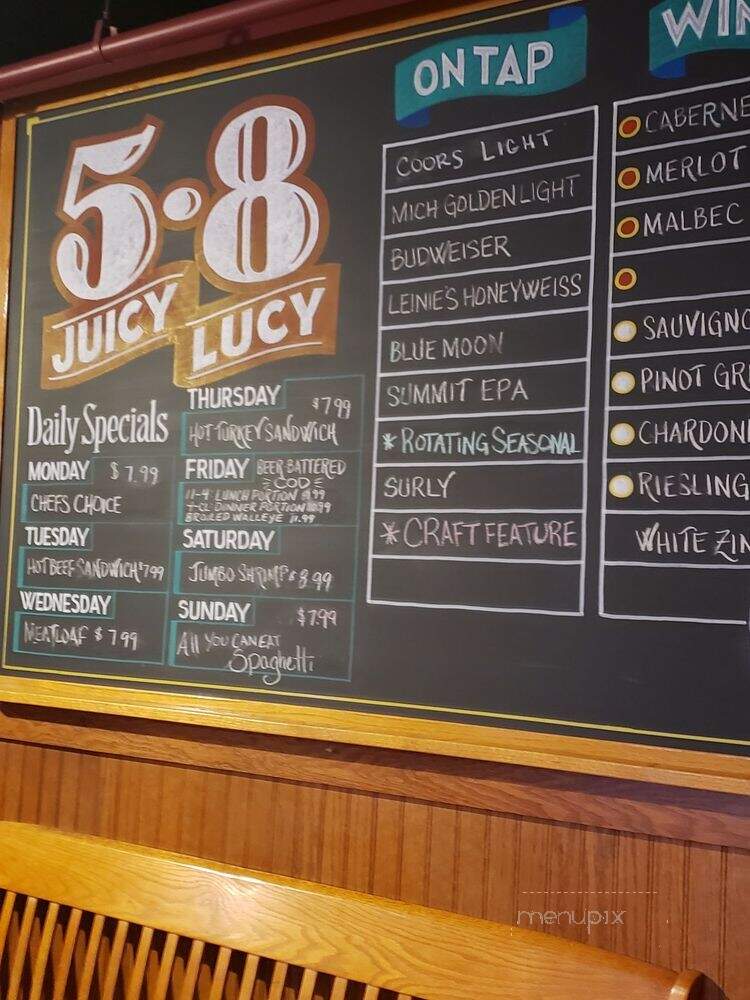 5·8
JUICY LUCY
Daily Specials
MONDAY $7.99
CHEFS CHOICE
TUESDAY
HOT BEEF SANDWICH $7.99
WEDNESDAY
MEATLOAF $7.99
THURSDAY
$7.99
HOT TURKEY SANDWICH
FRIDAY BEER BATTERED
COD
11-4 LUNCH PORTION
4-CL DINNER PORTION
BROILED WALLEYE 11.99
SATURDAY
JUMBO SHRIMP $8.99
SUNDAY $7.99
ALL YOU CAN EAT
Spaghetti
ON TAP
COORS LIGHT
MICH GOLDEN LIGHT
BUDWEISER
LEINIE'S HONEYWEISS
BLUE MOON
SUMMIT EPA
* ROTATING SEASONAL
SURLY
* CRAFT FEATURE
WIN
CABERNE
MERLOT
MALBEC
SAUVIGNO
PINOT GR
CHARDON
RIESLING
WHITE ZIN
menupix